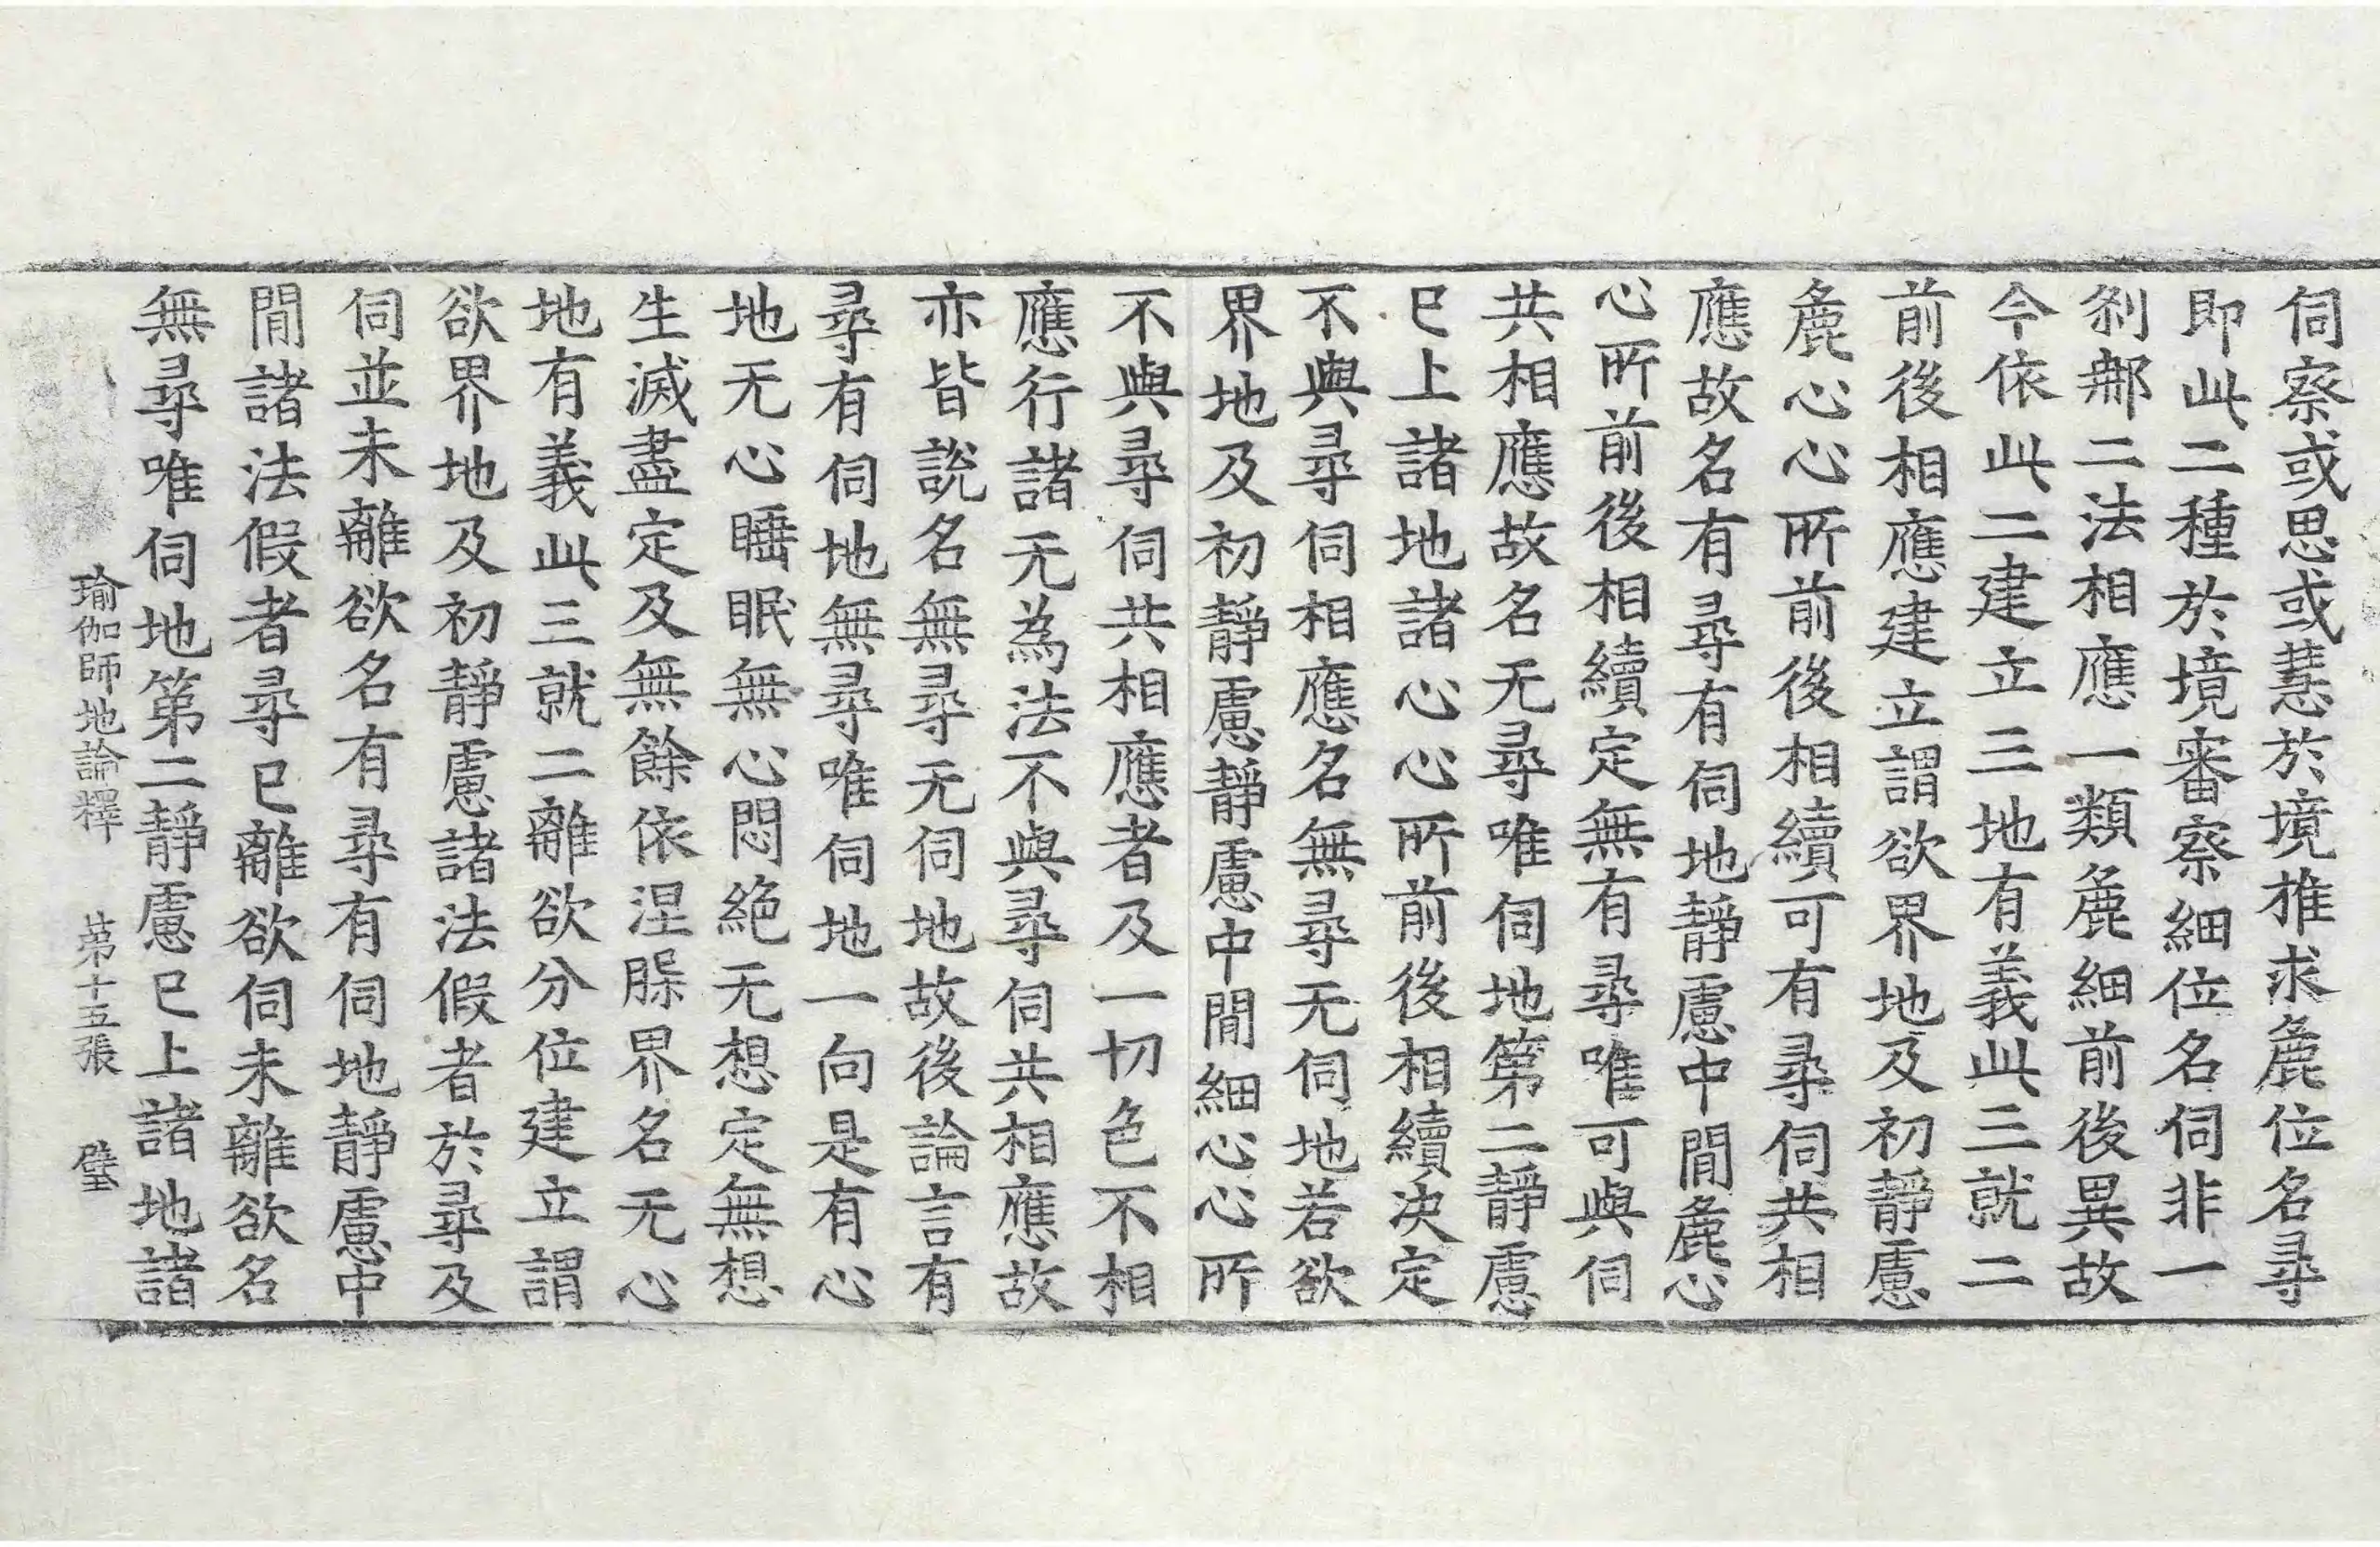 伺察或思或慧於境推求麁位名尋
即此二種於境審察細位名伺非一
刹那二法相應一類麁細前後異故
今依此二建立三地有義此三就二
前後相應建立謂欲界地及初靜慮
麁心心所前後相續可有尋伺共相
應故名有尋有伺地靜慮中閒麁心
心所前後相續定無有尋唯可與伺
共相應故名无尋唯伺地第二靜慮
已上諸地諸心心所前後相續决定
不與尋伺相應名無尋无伺地若欲
界地及初靜慮靜慮中閒細心心所
不與尋伺共相應者及一切色不相
應行諸无為法不與尋伺共相應故
亦皆說名無尋无伺地故後論言有
尋有伺地無尋唯伺地一向是有心
地无心睡眠無心悶絶无想定無想
生滅盡定及無餘依涅槃界名无心
地有義此三就二離欲分位建立謂
欲界地及初靜慮諸法假者於尋及
伺並未離欲名有尋有伺地靜慮中
閒諸法假者尋已離欲伺未離欲名
無尋唯伺地第二靜慮已上諸地諸
瑜伽師地論釋 第十五張 璧